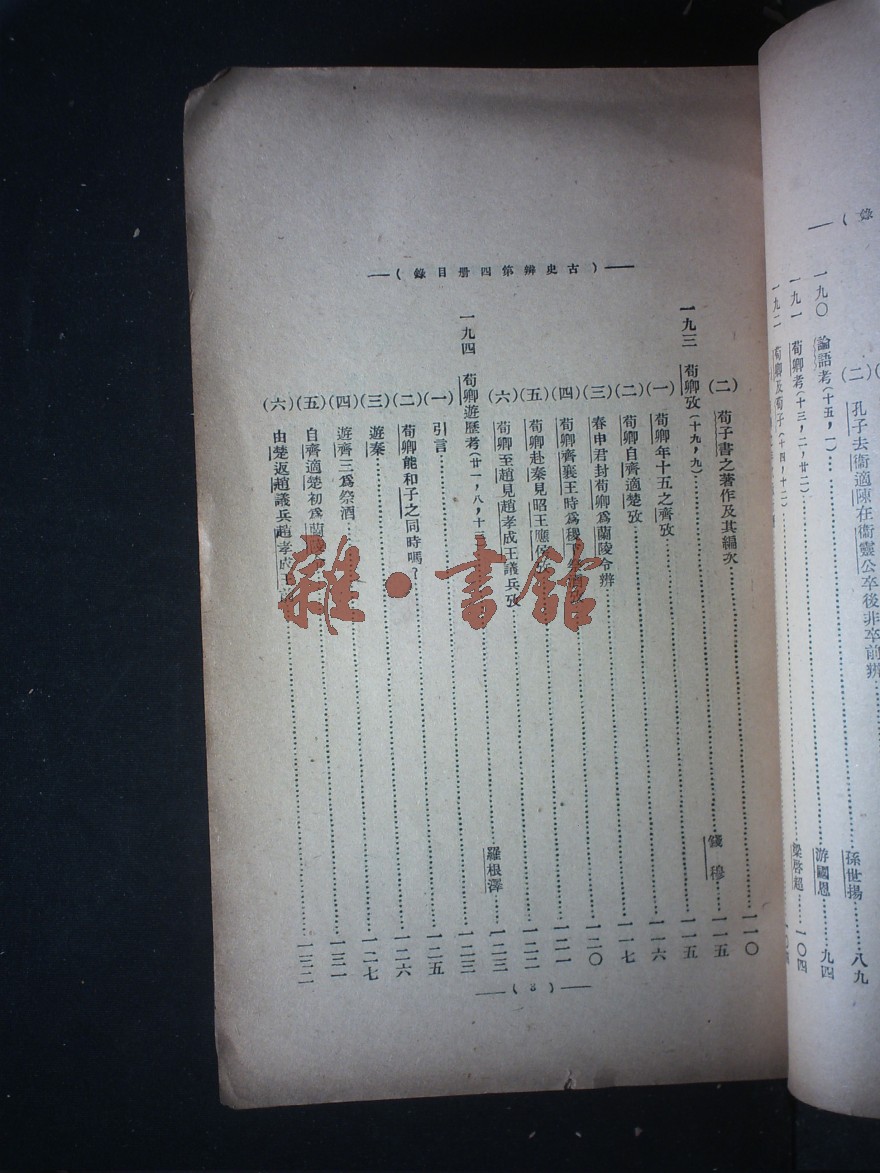 錄)
(二)孔子去衞適陳在衞靈公卒後非卒前辨……孫世揚……八九
一九〇 論語考(十五,一)……游國恩……九四
一九一 荀卿考(十三,二,廿二)……梁啓超……一〇四
一九二 荀卿及荀子(十四,十二)……
(古史辨第四册目錄)
(二)荀子書之著作及其編次……一一〇
一九三 荀卿攷(十九,九)……錢穆……一一五
(一)荀卿年十五之齊攷……一一五
(二)荀卿自齊適楚攷……一一六
(三)春申君封荀卿爲蘭陵令辨……一一七
(四)荀卿齊襄王時爲稷下……一二〇
(五)荀卿赴秦見昭王應侯攷……一二一
(六)荀卿至趙見趙孝成王議兵攷……一二二
一九四 荀卿遊歷考(廿一,八,十三……羅根澤……一二三
(一)引言……一二三
(二)荀卿能和子之同時嗎?……一二五
(三)遊秦……一二六
(四)遊齊三爲祭酒……一二七
(五)自齊適楚初爲蘭陵……一三一
(六)由楚返趙議兵趙孝成王前……一三二
(8)
雜·書館